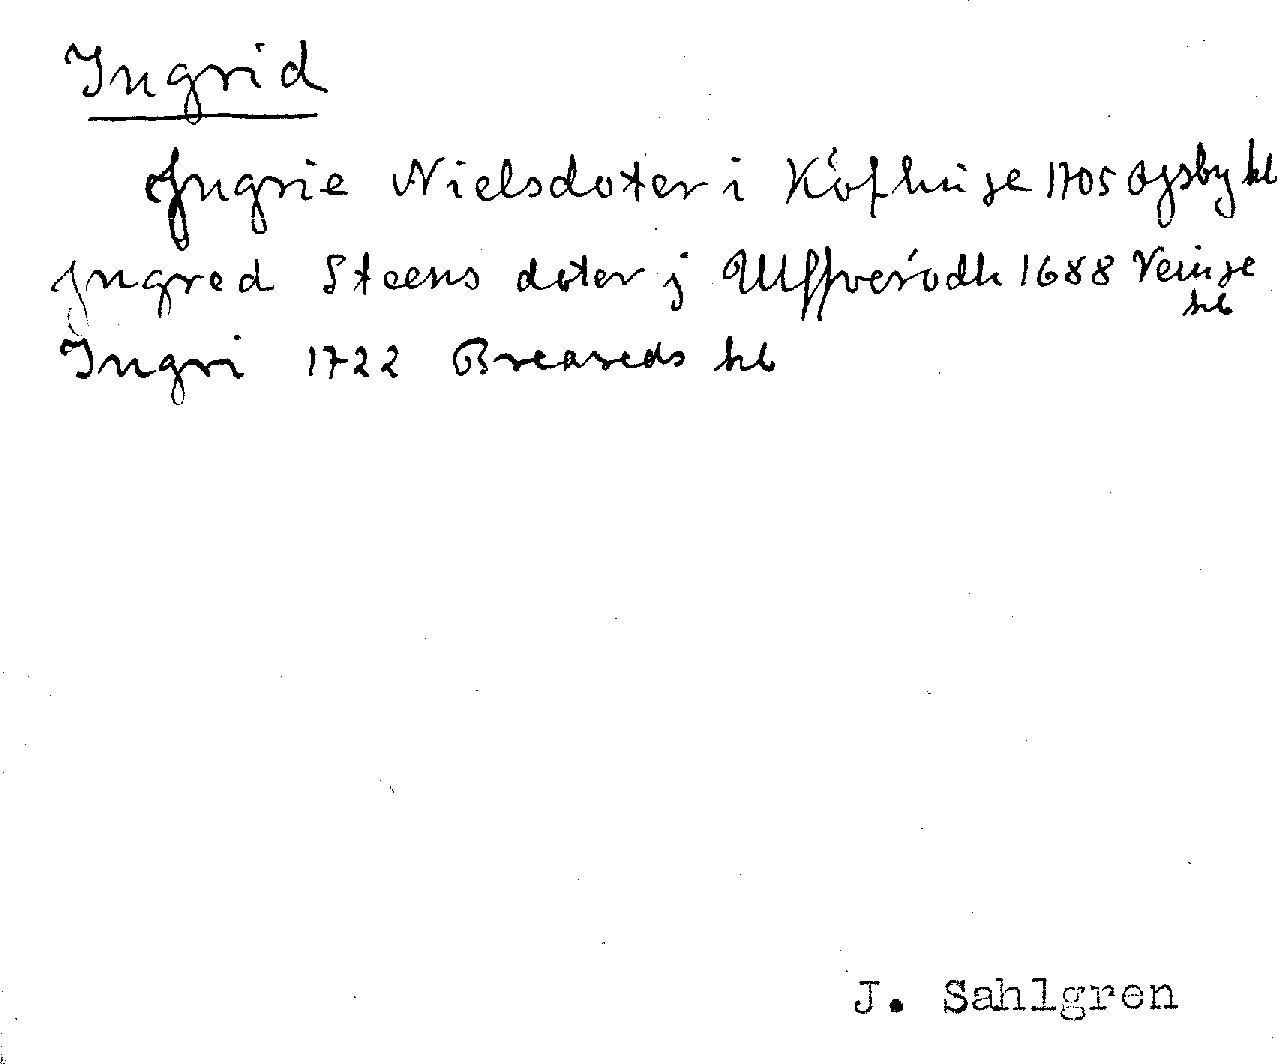 Ingrid
Jngrie Nielsdoter i Köfhuse 1705 Ogsby kb
Jngred Steens doter j Ulffverödh 1688 Veinge
kb
Ingri 1722 Breareds kb
J. Sahlgren